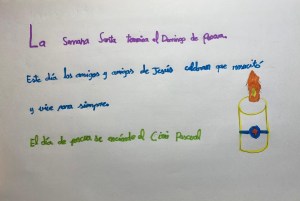 La Semana Santa termina el Domingo de Pascua.
Este día los amigos y amigas de Jesús celebran que resucitó
y vive para siempre.
El día de pascua se enciende el Cirio Pascual